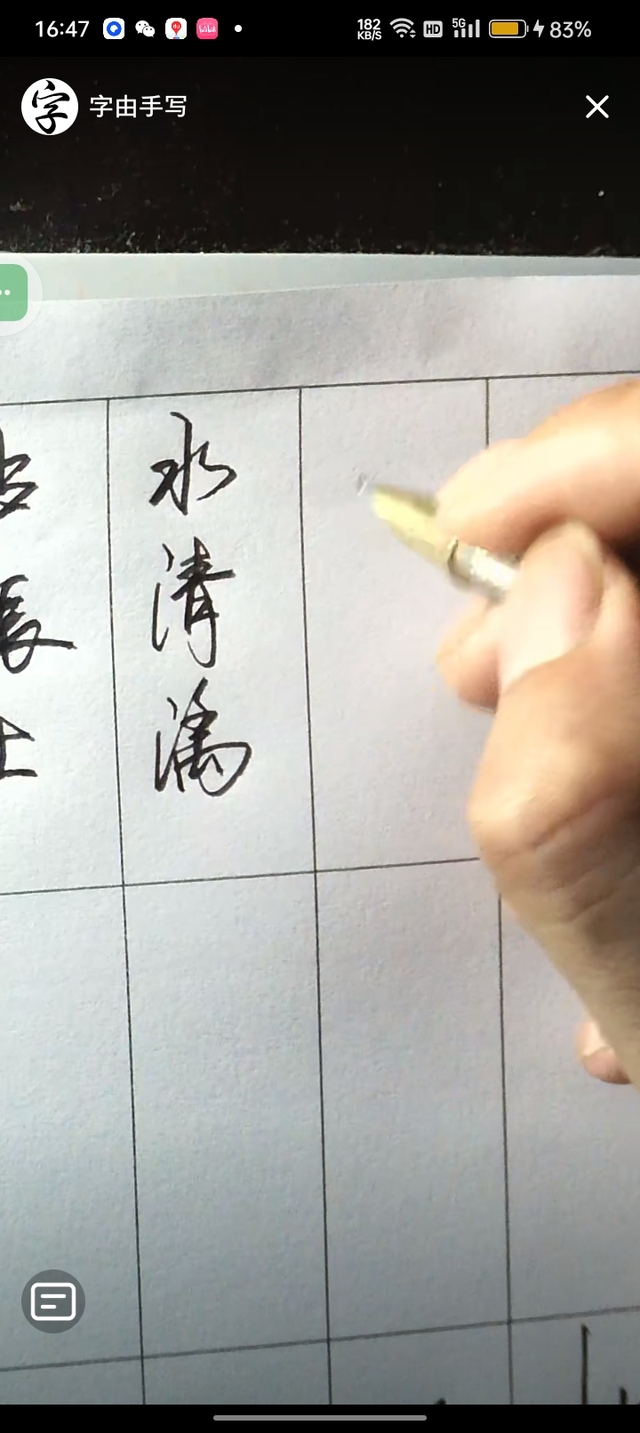 16:47
182 KB/S HD 5G 83%
字由手写
水清